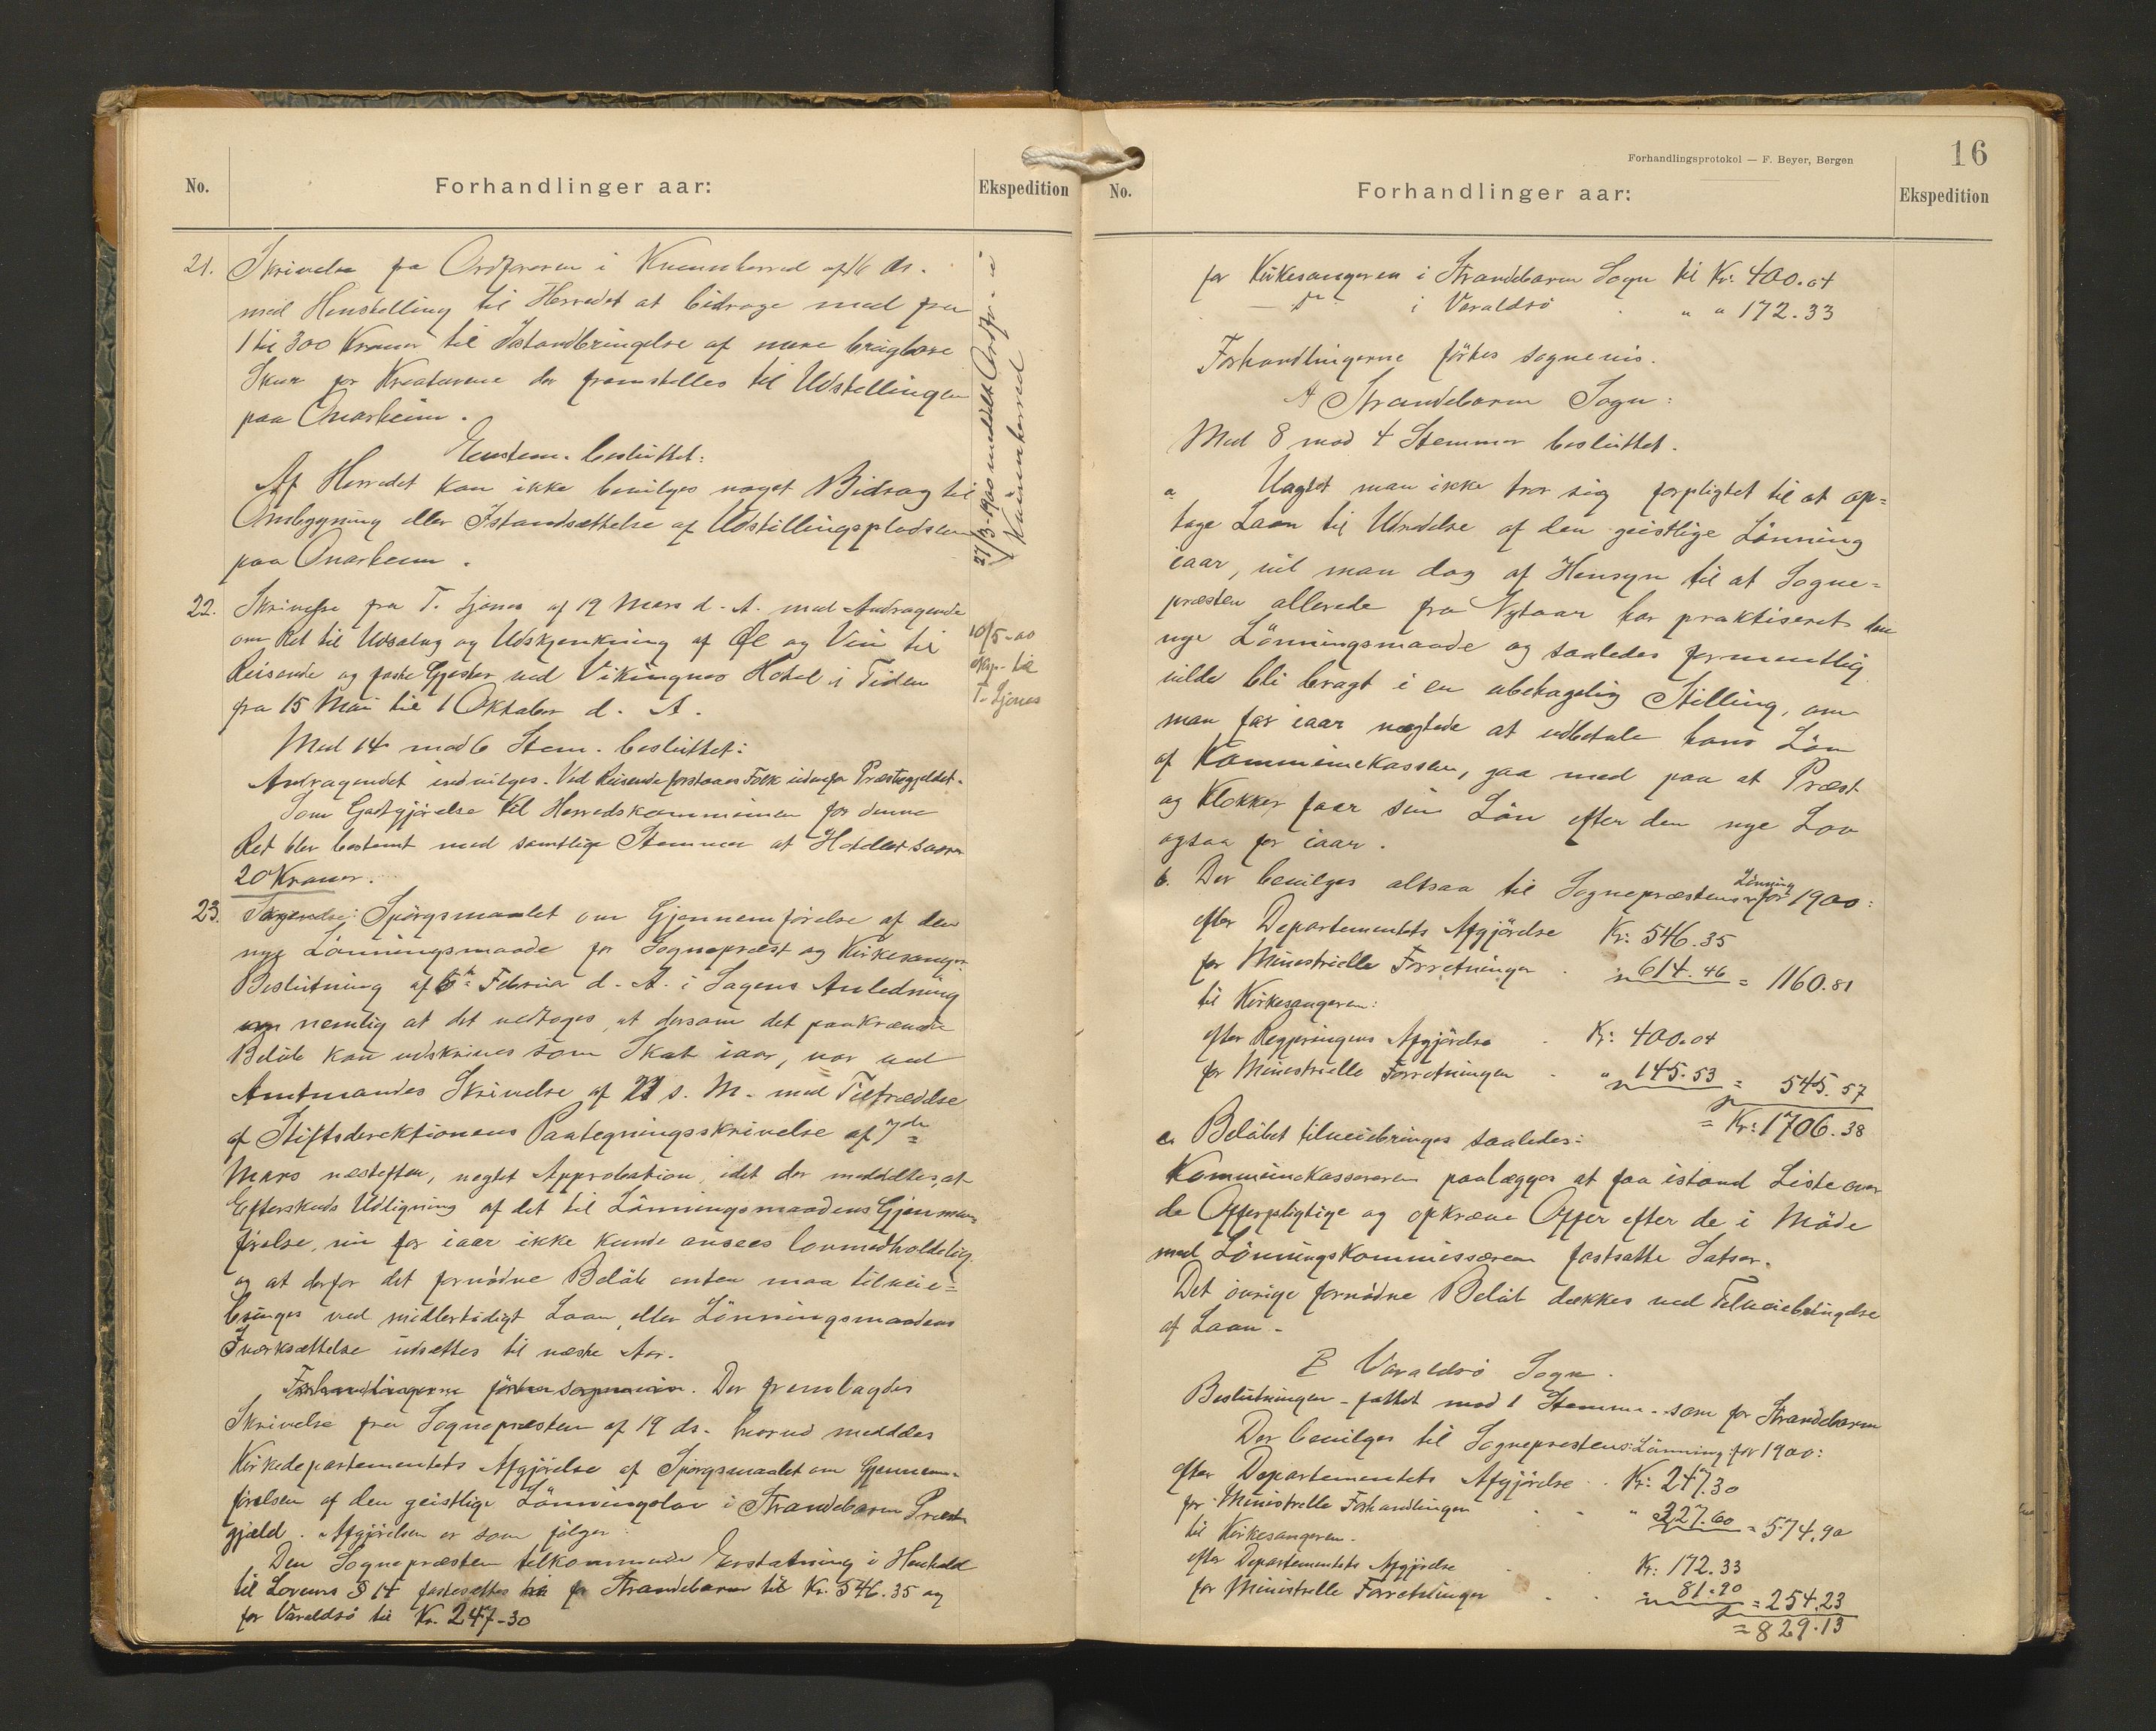 No.
Forhandlinger aar:
Ekspedition
21. Skrivelse fra Ordføreren i Kvinnherred af 16 ds.
med Henstilling til Herredet at bidrage med fra
1 til 300 Kroner til Istandbringelse af mere brugbare
Skur for Kreaturene der fremstilles til Udstillingen
paa Onarheim.
Enstem. besluttet:
Af Herredet kan ikke bevilges noget Bidrag til
Ombygning eller Istandsættelse af Udstillingspladsen
paa Onarheim.
27/3-1900 meddelt Ordfør. i
Kvinnherred
22. Skrivelse fra T. Sjones af 19 Mars d. A. med Andragende
om Ret til Udsalug og Udskjenkning af Øl og Vin til
Reisende og faste Gjester ved Vikingnes Hotel i Tiden
fra 15 Mai til 1 Oktober d. A.
Med 14 mod 6 Stem. besluttet:
Andragendet indvilges. Ved Reisende forstaaes Folk udenfor Præstegjeldet.
Som Godtgjörelse til Herredskommunen for denne
Ret blev bestemt med samtlige Stemmer at Hotellet svarer
20 Kroner.
10/5-00
eksp. til
T. Sjones
23. Spörgsmaalet om Gjennemförelse af den
nye Lönningsmaade for Sogneprest og Kirkesanger.
Beslutning af 6te Februar d. A. i Sagens Anledning
nemlig at det vedtoges, at dersom det paakrævede
Belöb kan udskrives som Skat iaar, var ved
Amtmandes Skrivelse af 27 s. M. med Tiltrædelse
af Stiftsdirektionens Paategningsskrivelse af 7de
Mars næstefter, negtet Approbation, idet der meddeltes, at
Efterskuds Udligning af det til Lönningsmaadens Gjennem-
förelse, nu for iaar ikke kunde ansees lovmedholdelig
og at derfor det fornødne Beløb enten maa tilveie=
bringes ved midlertidigt Laan, eller Lönningsmaadens
Iværksættelse udsættes til næste Aar.
Forhandlingerne førtes sognevis. Der fremlagdes
Skrivelse fra Sognepræsten af 19 ds. hvorved meddeles
Kirkedepartementets Afgjörelse af Spörgsmaalet om Gjennem-
förelsen af den geistlige Lönningslov i Strandebarm Præste
gjæld. Afgjörelsen er som følger:
Den Sognepræsten tilkommende Erstatning i Henhold
til Lovens § 14 fastsættes for Strandebarm til Kr. 546.35 og
for Varaldsö til Kr. 247-30
16
Forhandlingsprotokol — F. Beyer, Bergen
No.
Forhandlinger aar:
Ekspedition
for Kirkesangeren i Strandebarm Sogn til Kr. 400.04
— do — i Varaldsö . " " 172.33
Forhandlingerne förtes sognevis.
A Strandebarm Sogn:
Med 8 mod 4 Stemmer besluttet.
a. Uagtet man ikke tror sig forpligtet til at op=
tage Laan til Udredelse af den geistlige Lönning
iaar, vil man dog af Hensyn til at Sogne=
præsten allerede fra Nytaar har praktiseret den
nye Lönningsmaade og saaledes formentlig
vilde bli bragt i en ubehagelig Stilling, om
man for iaar nægtede at udbetale hans Løn
af Kommunekassen, gaa med paa at Præst
og Klokker faar sin Lön efter den nye Lov
ogsaa for iaar.
b. Der bevilges altsaa til Sognepræstens Lönning for 1900:
efter Departementets Afgjörelse Kr: 546.35
for Minestrielle Forretninger . " 614.46 = 1160.81
til Kirkesangeren:
efter Regjeringens Afgjörelse . Kr: 400.04
for Minestrielle Forretninger . " 145.53 = 545.57
= Kr: 1706.38
c. Belöbet tilveiebringes saaledes:
Kommunekassereren paalægges at faa istand Liste over
de Offerpligtige og opkræve Offer efter de i Möde
med Lönningskommissæren fastsatte Satser.
Det övrige fornødne Belöb dækkes ved Tilveiebringelse
af Laan.
B Varaldsö Sogn.
Beslutningen - fattet mod 1 Stemme - som for Strandebarm
Der bevilges til Sogneprestens Lönning for 1900:
efter Departementets Afgjördse . . Kr: 247.30
for Ministrelle Forhandlinger . . . " 327.60 = 574.90
til Kirkesangeren.
efter Departementets Afgjörelse . Kr: 172.33
for Ministrelle Forretninger . . " 81.90 = 254.23
= 829.13